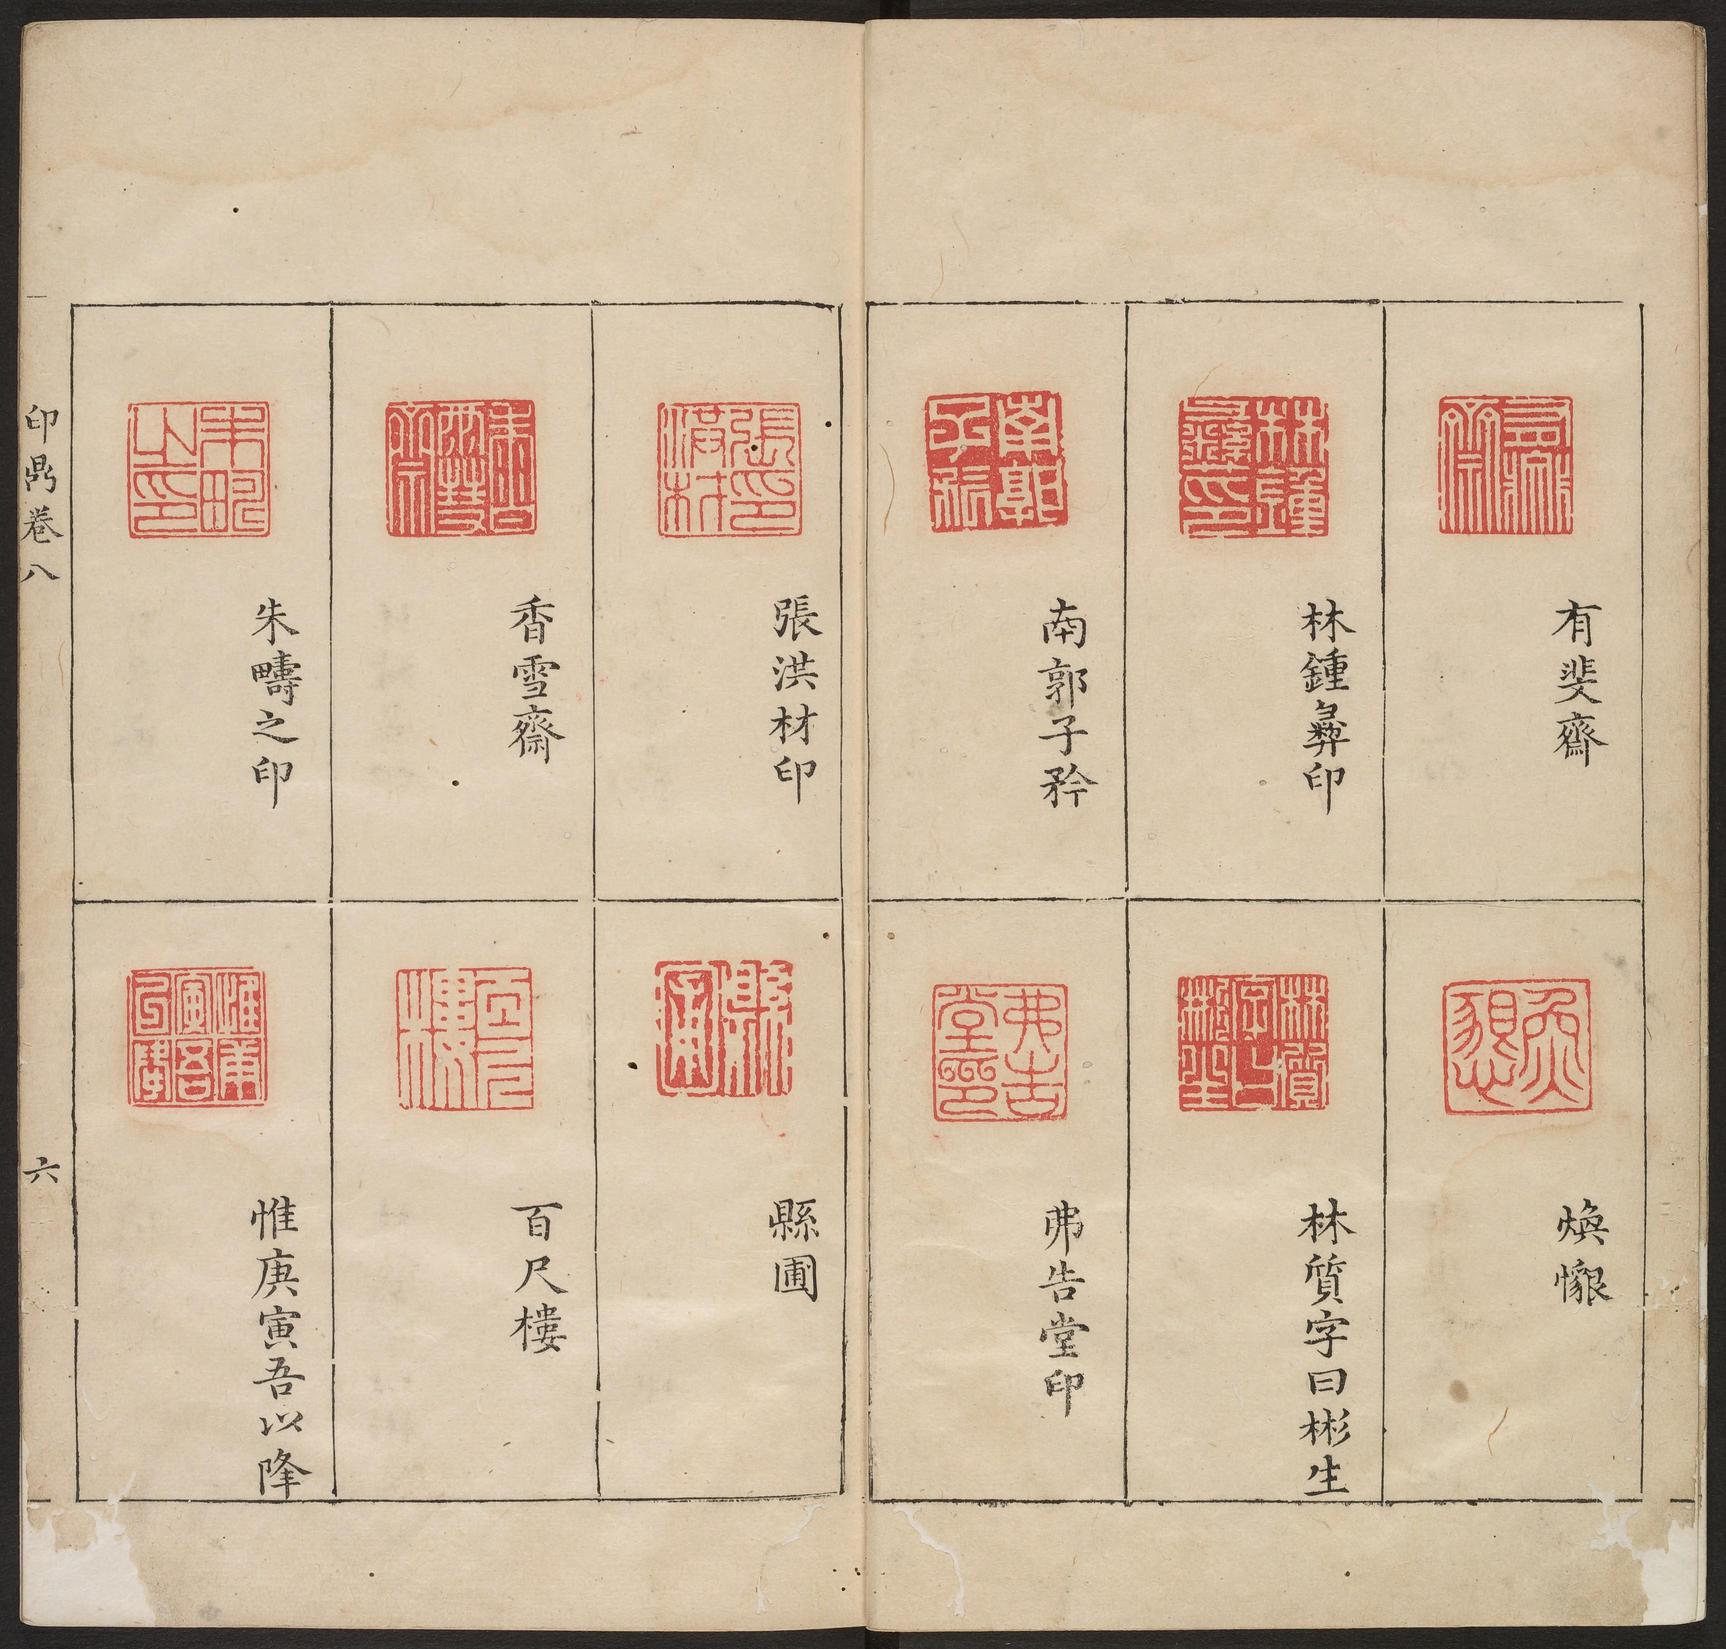 有斐齋
林鍾彝印
南郭子矜
煥懇
林質字曰彬生
弗告堂印
張洪材印
香雪齋
朱疇之印
縣圃
百尺樓
惟庚寅吾以降
印鼎卷八
六